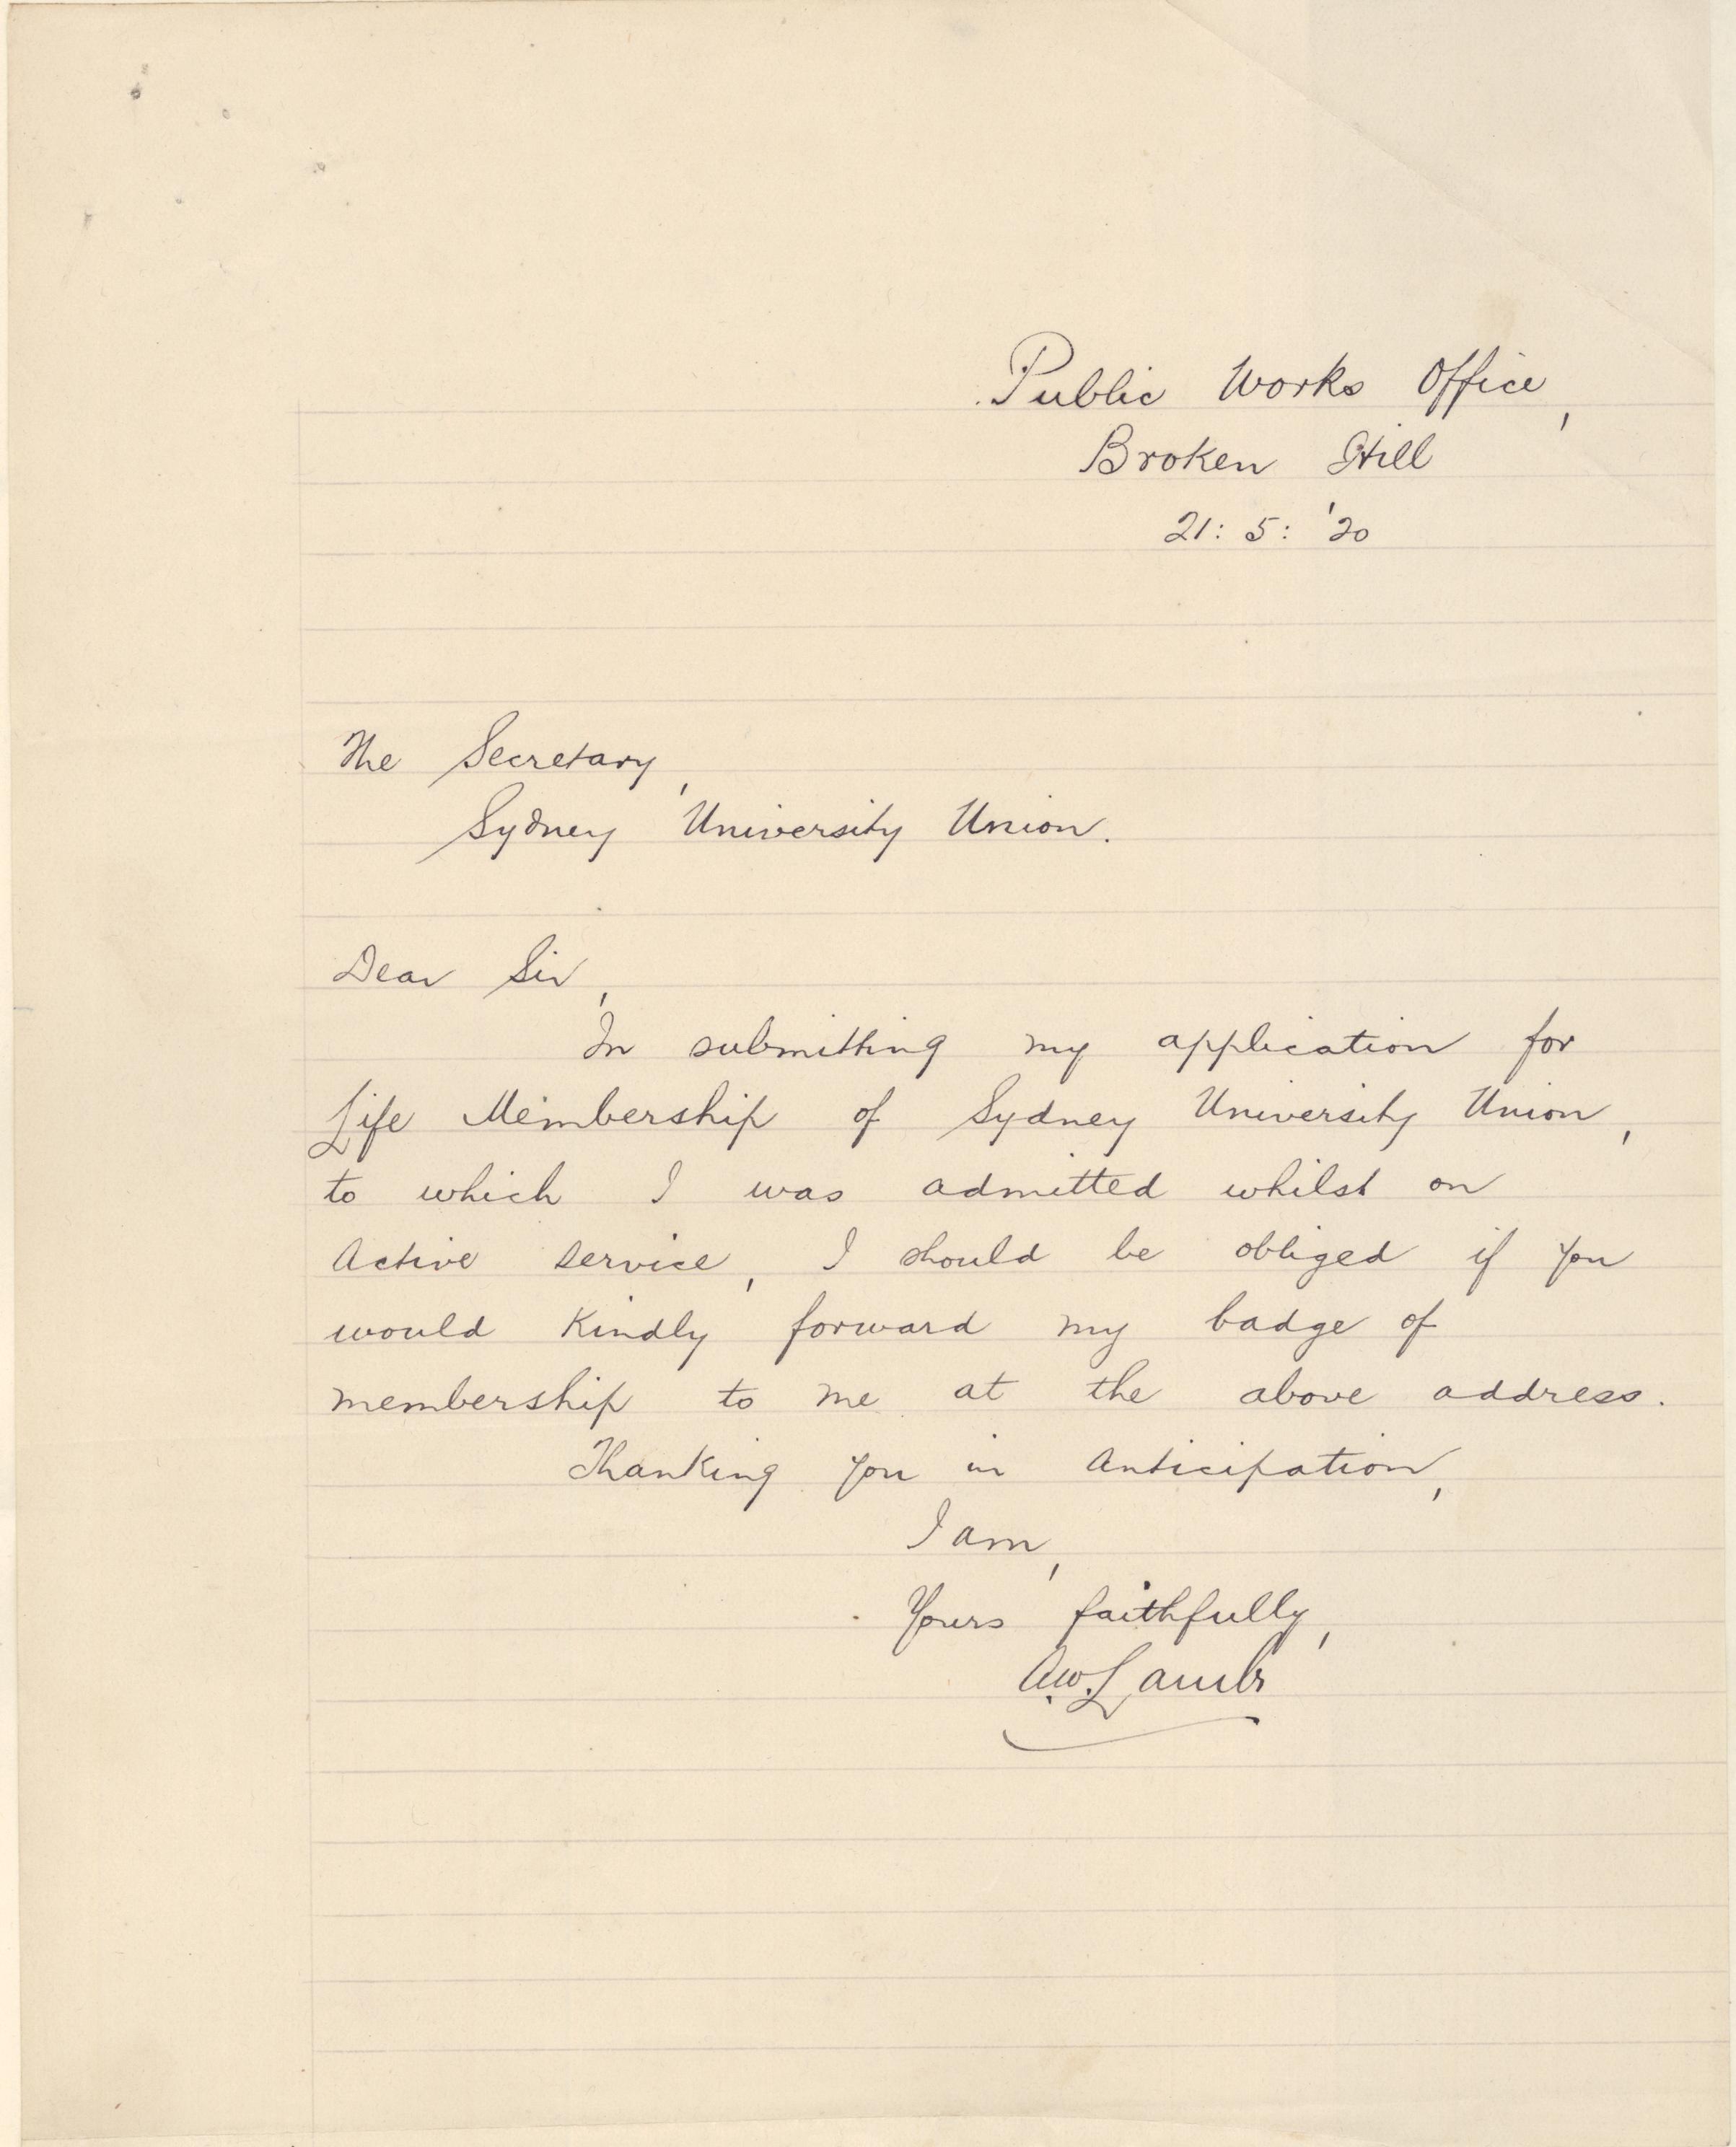 Public Works Office,
Broken Hill
21: 5: '20
The Secretary,
Sydney University Union.
Dear Sir,
In submitting my application for
Life Membership of Sydney University Union,
to which I was admitted whilst on
Active Service, I should be obliged if you
would kindly forward my badge of
membership to me at the above address.
Thanking you in Anticipation,
I am,
Yours faithfully,
A.W. Lamb